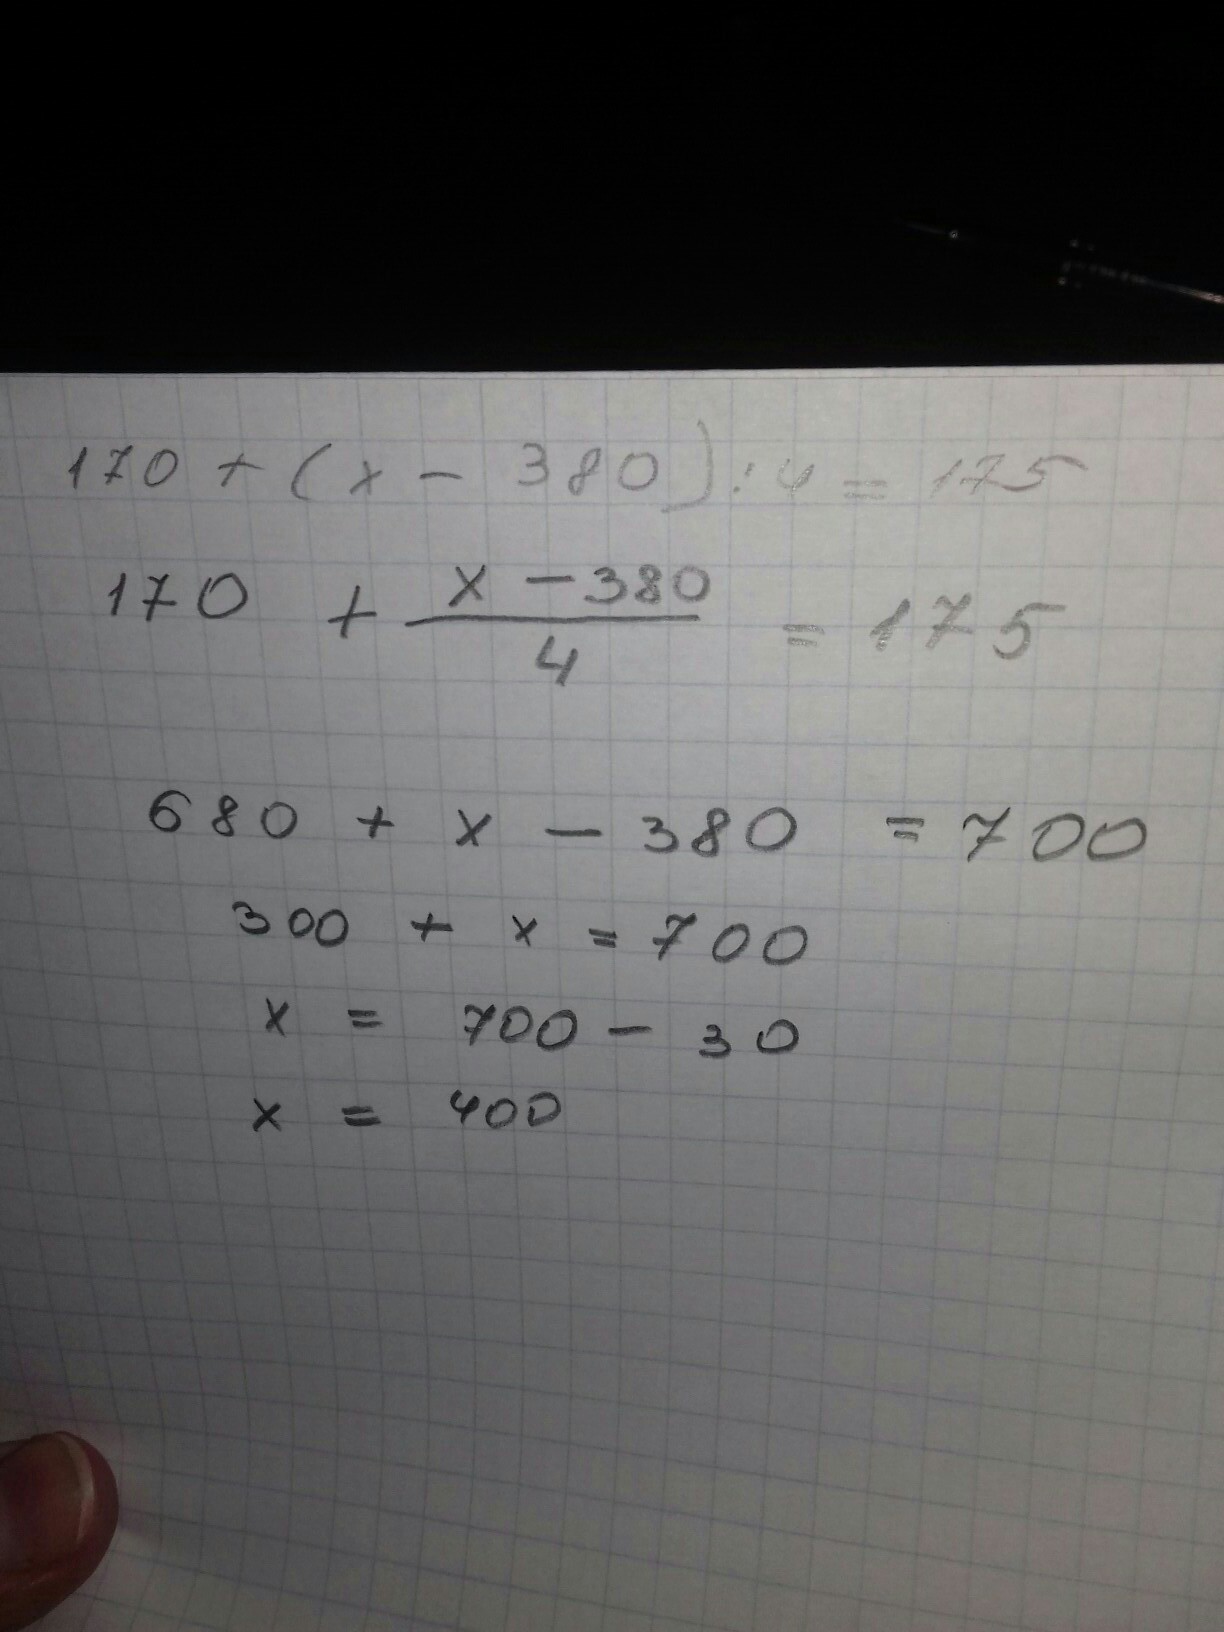 170 + (x - 380) : 4 = 175
170 + \frac{x - 380}{4} = 175
680 + x - 380 = 700
300 + x = 700
x = 700 - 30
x = 400